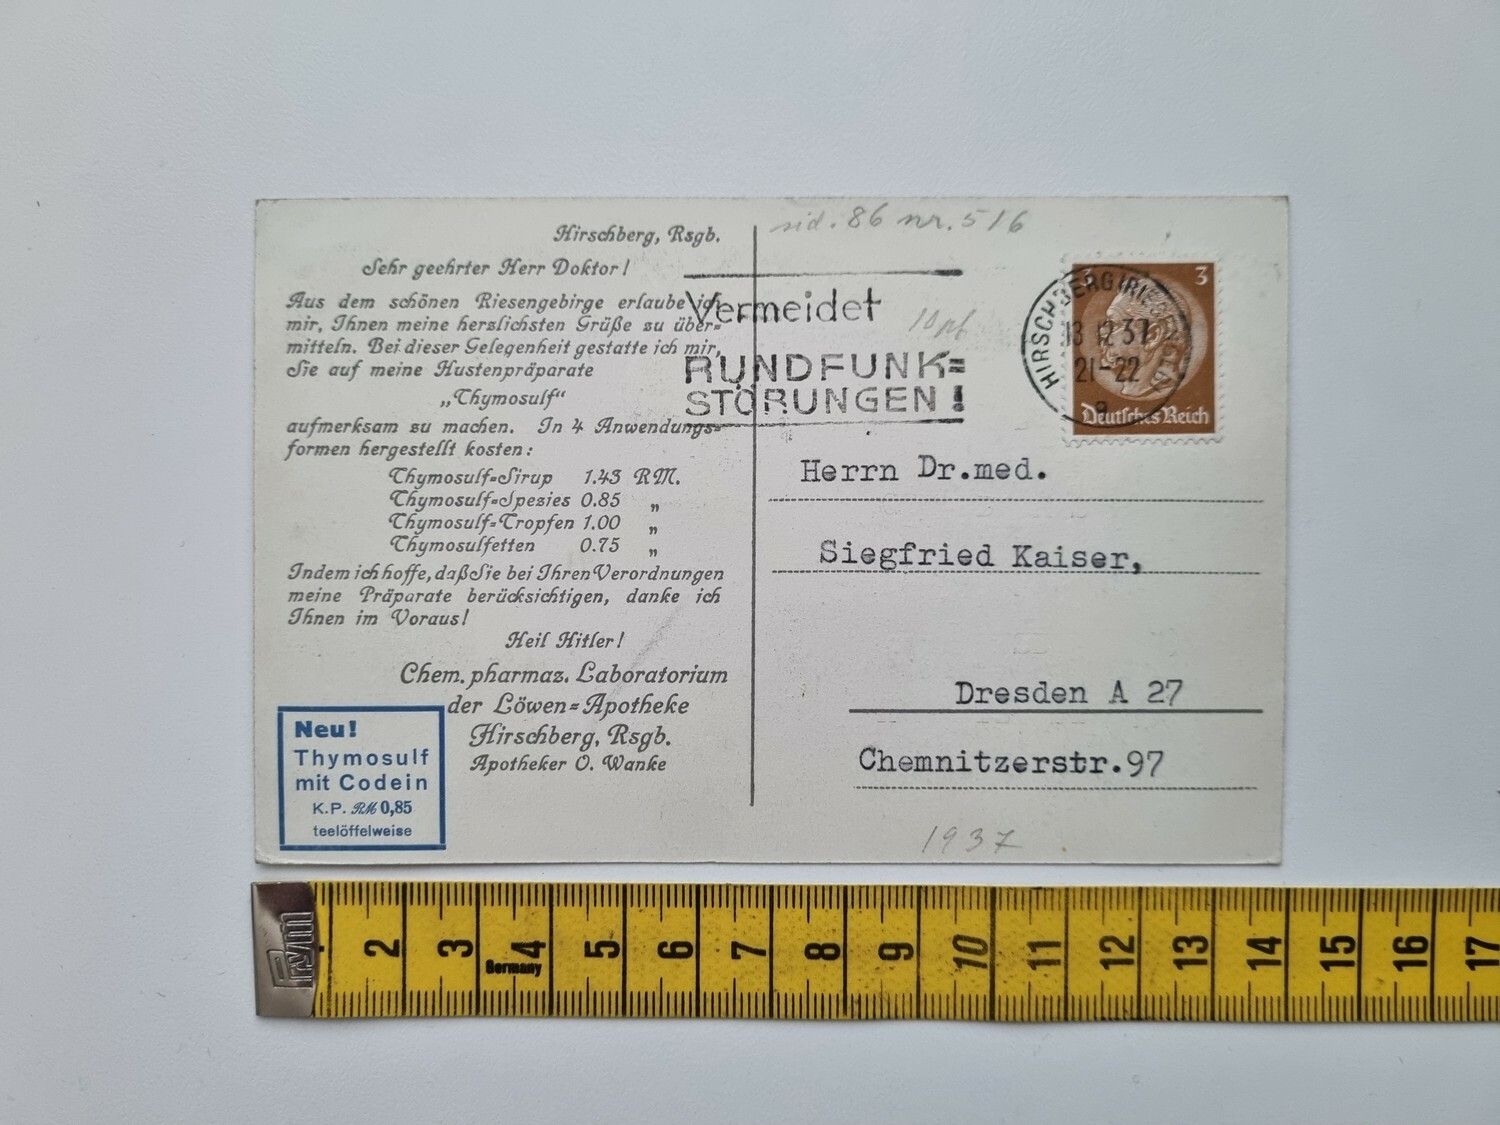 Hirschberg, Rsgb.
Sehr geehrter Herr Doktor!
Aus dem schönen Riesengebirge erlaube ich
mir, Ihnen meine herzlichsten Grüße zu über=
mitteln. Bei dieser Gelegenheit gestatte ich mir,
Sie auf meine Hustenpräparate
„Thymosulf“
aufmerksam zu machen. In 4 Anwendungs=
formen hergestellt kosten:
Thymosulf=Sirup 1.43 RM.
Thymosulf=Spezies 0.85 „
Thymosulf=Tropfen 1.00 „
Thymosulfetten 0.75 „
Indem ich hoffe, daß Sie bei Ihren Verordnungen
meine Präparate berücksichtigen, danke ich
Ihnen im Voraus!
Heil Hitler!
Chem. pharmaz. Laboratorium
der Löwen=Apotheke
Hirschberg, Rsgb.
Apotheker O. Wanke
Neu!
Thymosulf
mit Codein
K.P. RM 0,85
teelöffelweise
sid. 86 nr. 516
Vermeidet
RUNDFUNK=
STÖRUNGEN!
10 pf
HIRSCHBERG
13 12 37
21-22
a
3 3
Deutsches Reich
Herrn Dr.med.
Siegfried Kaiser,
Dresden A 27
Chemnitzerstr.97
1937
Prym
2 3 4 5 6 7 8 9 10 11 12 13 14 15 16 17
Germany